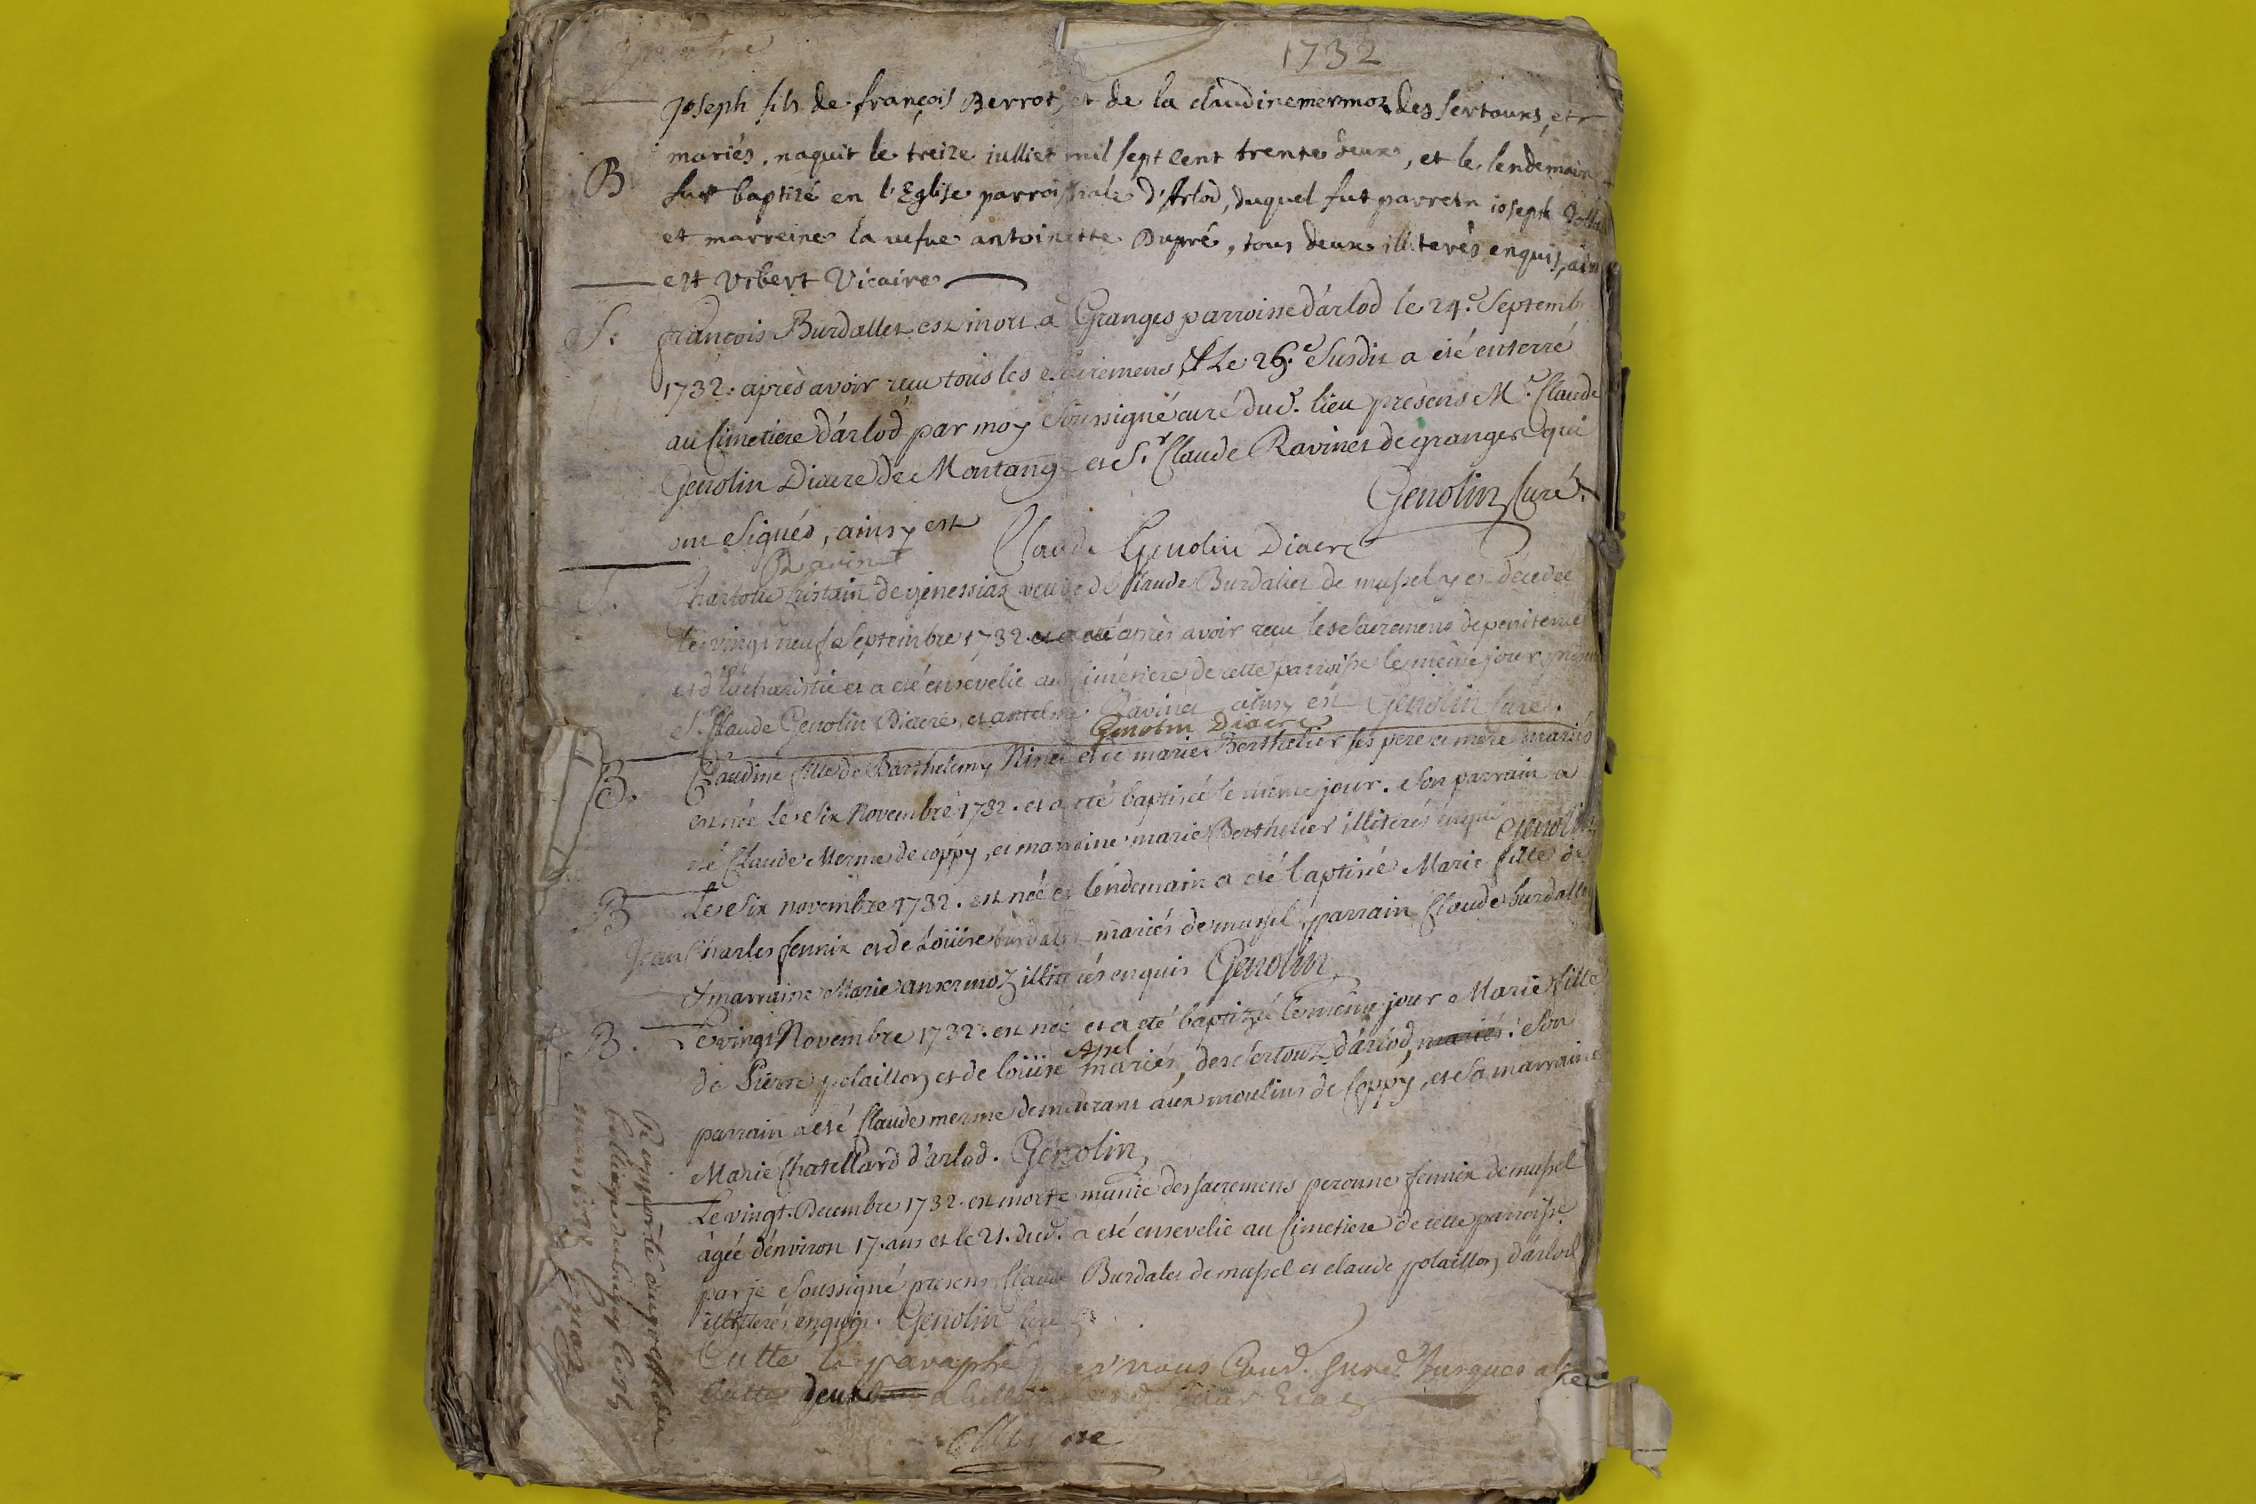 1732
Joseph fils de françois Berrot, et de la claudine mermoz des sertoux, et
mariés, naquit le treize iulliet mil sept cent trente deux, et le lendemain
B fut baptizé en l'Eglise parroissiale d'Arlod, duquel fut parrein ioseph
et marreine la vefve antoinette Dupré, tous deux illiterés enquis, ain
est Vibert Vicaire
S. françois Burdallet est mort a Granges parroisse d'arlod le 24.e Septemb
1732. après avoir reçu tous les sacremens et Le 26.e Susdit a eté enterré
au Cimetiere d'arlod par moy Soussigné curé dud. lieu présens M.e Claude
Genolin Diacre de Montang et S.r Claude Ravinet de granges qui
Genolin Curé.
ont Signés, ainsy est
Claude Genolin Diacre
Ravinet
S. Charlotte de genessiaz veuve de Claude Burdalet de mussel y est décédée
le vingt neuf Septembre 1732. et a eté après avoir reçu les sacremens de penitence
et d'Eucharistie et a eté ensevelie au Cimetiere de cette parroisse le même jour présens
S.r Claude Genolin Diacre, et antelme Ravinet ainsy est Genolin Curé.
Genolin Diacre
B. Claudine fille de Barthelemy Ninet et de marie Berthelier ses pere et mere mariés
est née le Six Novembre 1732. et a eté baptisée le même jour. Son parrain a
eté Claude Merme de coppy, et marraine marie Berthelier illiterés enquis Genolin
B Le Six novembre 1732. est née et lendemain a eté baptisée Marie fille de
Jean Charles fennix et de Loüise burdalet mariés de mussel, parrain Claude burdallet
et marraine Marie ansermoz illiterés enquis Genolin
B. Le vingt Novembre 1732. est née et a eté baptizée le même jour Marie fille
Apel
de Pierre polaillon et de loüise mariés, des Sertoux d'arlod, mariés. Son
parrain a eté Claude merme demeurant aux moulins de Coppy, et Sa marraine
Marie Chatellard d'arlod. Genolin
Le vingt Decembre 1732. est morte munie des sacremens peronne fennix de mussel
âgée d'environ 17. ans et le 21. dud. a eté ensevelie au Cimetiere de cette parroisse
par je Soussigné presens Claude Burdalet de mussel et claude polaillon d'arlod
illiterés enquis. Genolin Curé
Cotte paraphé par nous
Cotte deux